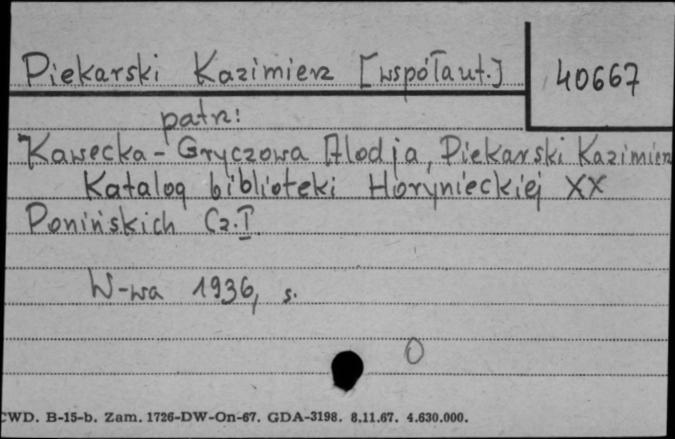 Piekarski Kazimierz [współaut.]
40667
patrz:
Kawecka-Gryczowa Alodja, Piekarski Kazimierz
Katalog biblioteki Horynieckiej XX
Ponińskich Cz. I
W-wa 1936, s.
0
CWD. B-15-b. Zam. 1726-DW-On-67. GDA-3198. 8.11.67. 4.630.000.